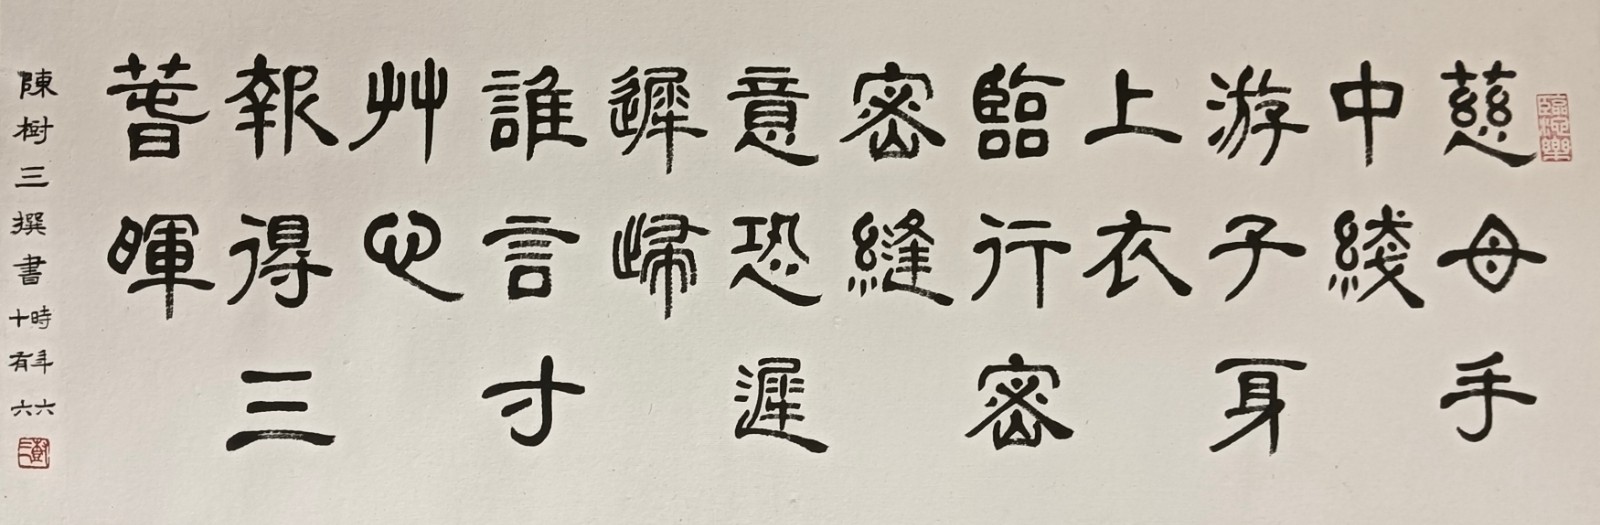 臨池樂
慈母手
中綫
游子身
上衣
臨行密
密縫
意恐遲
遲歸
誰言寸
艸心
報得三
萅暉
陳樹三撰書
時年六
十有六